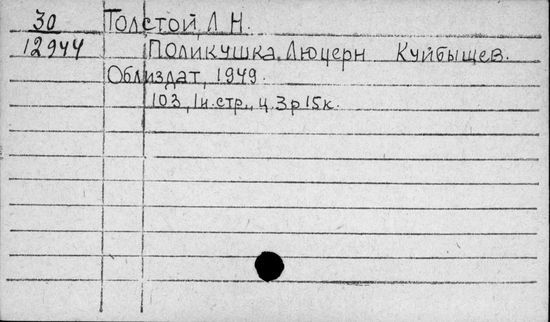 30 Толстой, Л. Н.
12944 Поликушка. Люцерн Куйбышев.
Облиздат, 1949.
103, 1н.стр., ц. 3р 15к.